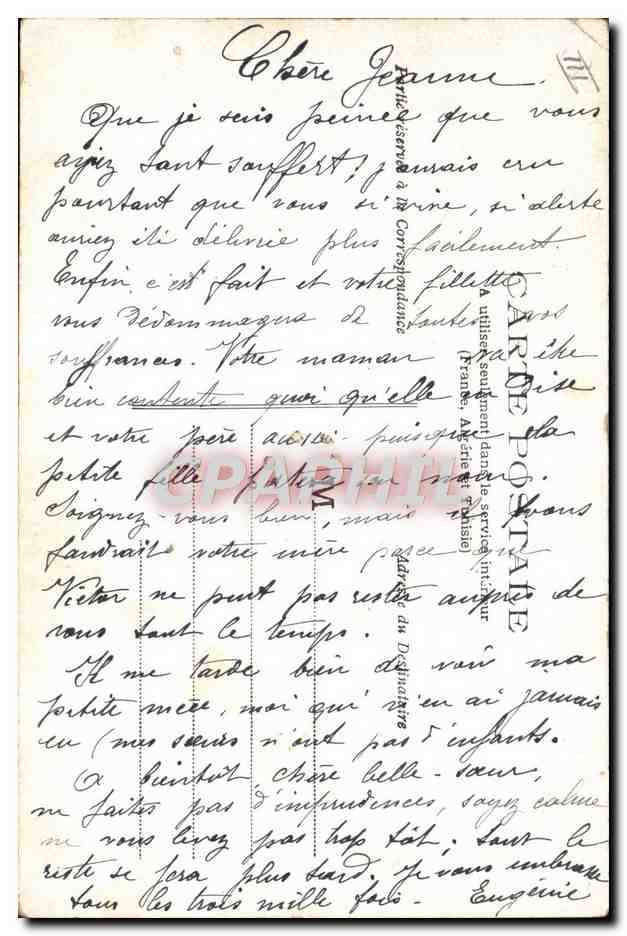 III
Chère Jeanne.
Que je suis peinée que vous
ayiez tant souffert! j'aurais cru
pourtant que vous si vive, si alerte
auriez été délivrée plus facilement.
Enfin c'est fait et votre fillette
vous dédommagera de toutes vos
souffrances. Votre maman va être
bien contente quoi qu'elle en dise
et votre père aussi puisque la
petite fille portera son nom.
Soignez-vous bien, mais il vous
faudrait votre mère parce que
Victor ne peut pas rester auprès de
vous tout le temps.
Il me tarde bien de voir ma
petite nièce, moi qui n'en ai jamais
eu (mes sœurs n'ont pas d'enfants.
A bientôt, chère belle-sœur,
ne faites pas d'imprudences, soyez calme
ne vous levez pas trop tôt. tout le
reste se fera plus tard. Je vous embrasse
tous les trois mille fois - Eugénie
CARTE POSTALE
A utiliser seulement dans le service intérieur
(France, Algérie et Tunisie)
Partie réservée à la Correspondance
Adresse du Destinataire
M
CPARPHIL